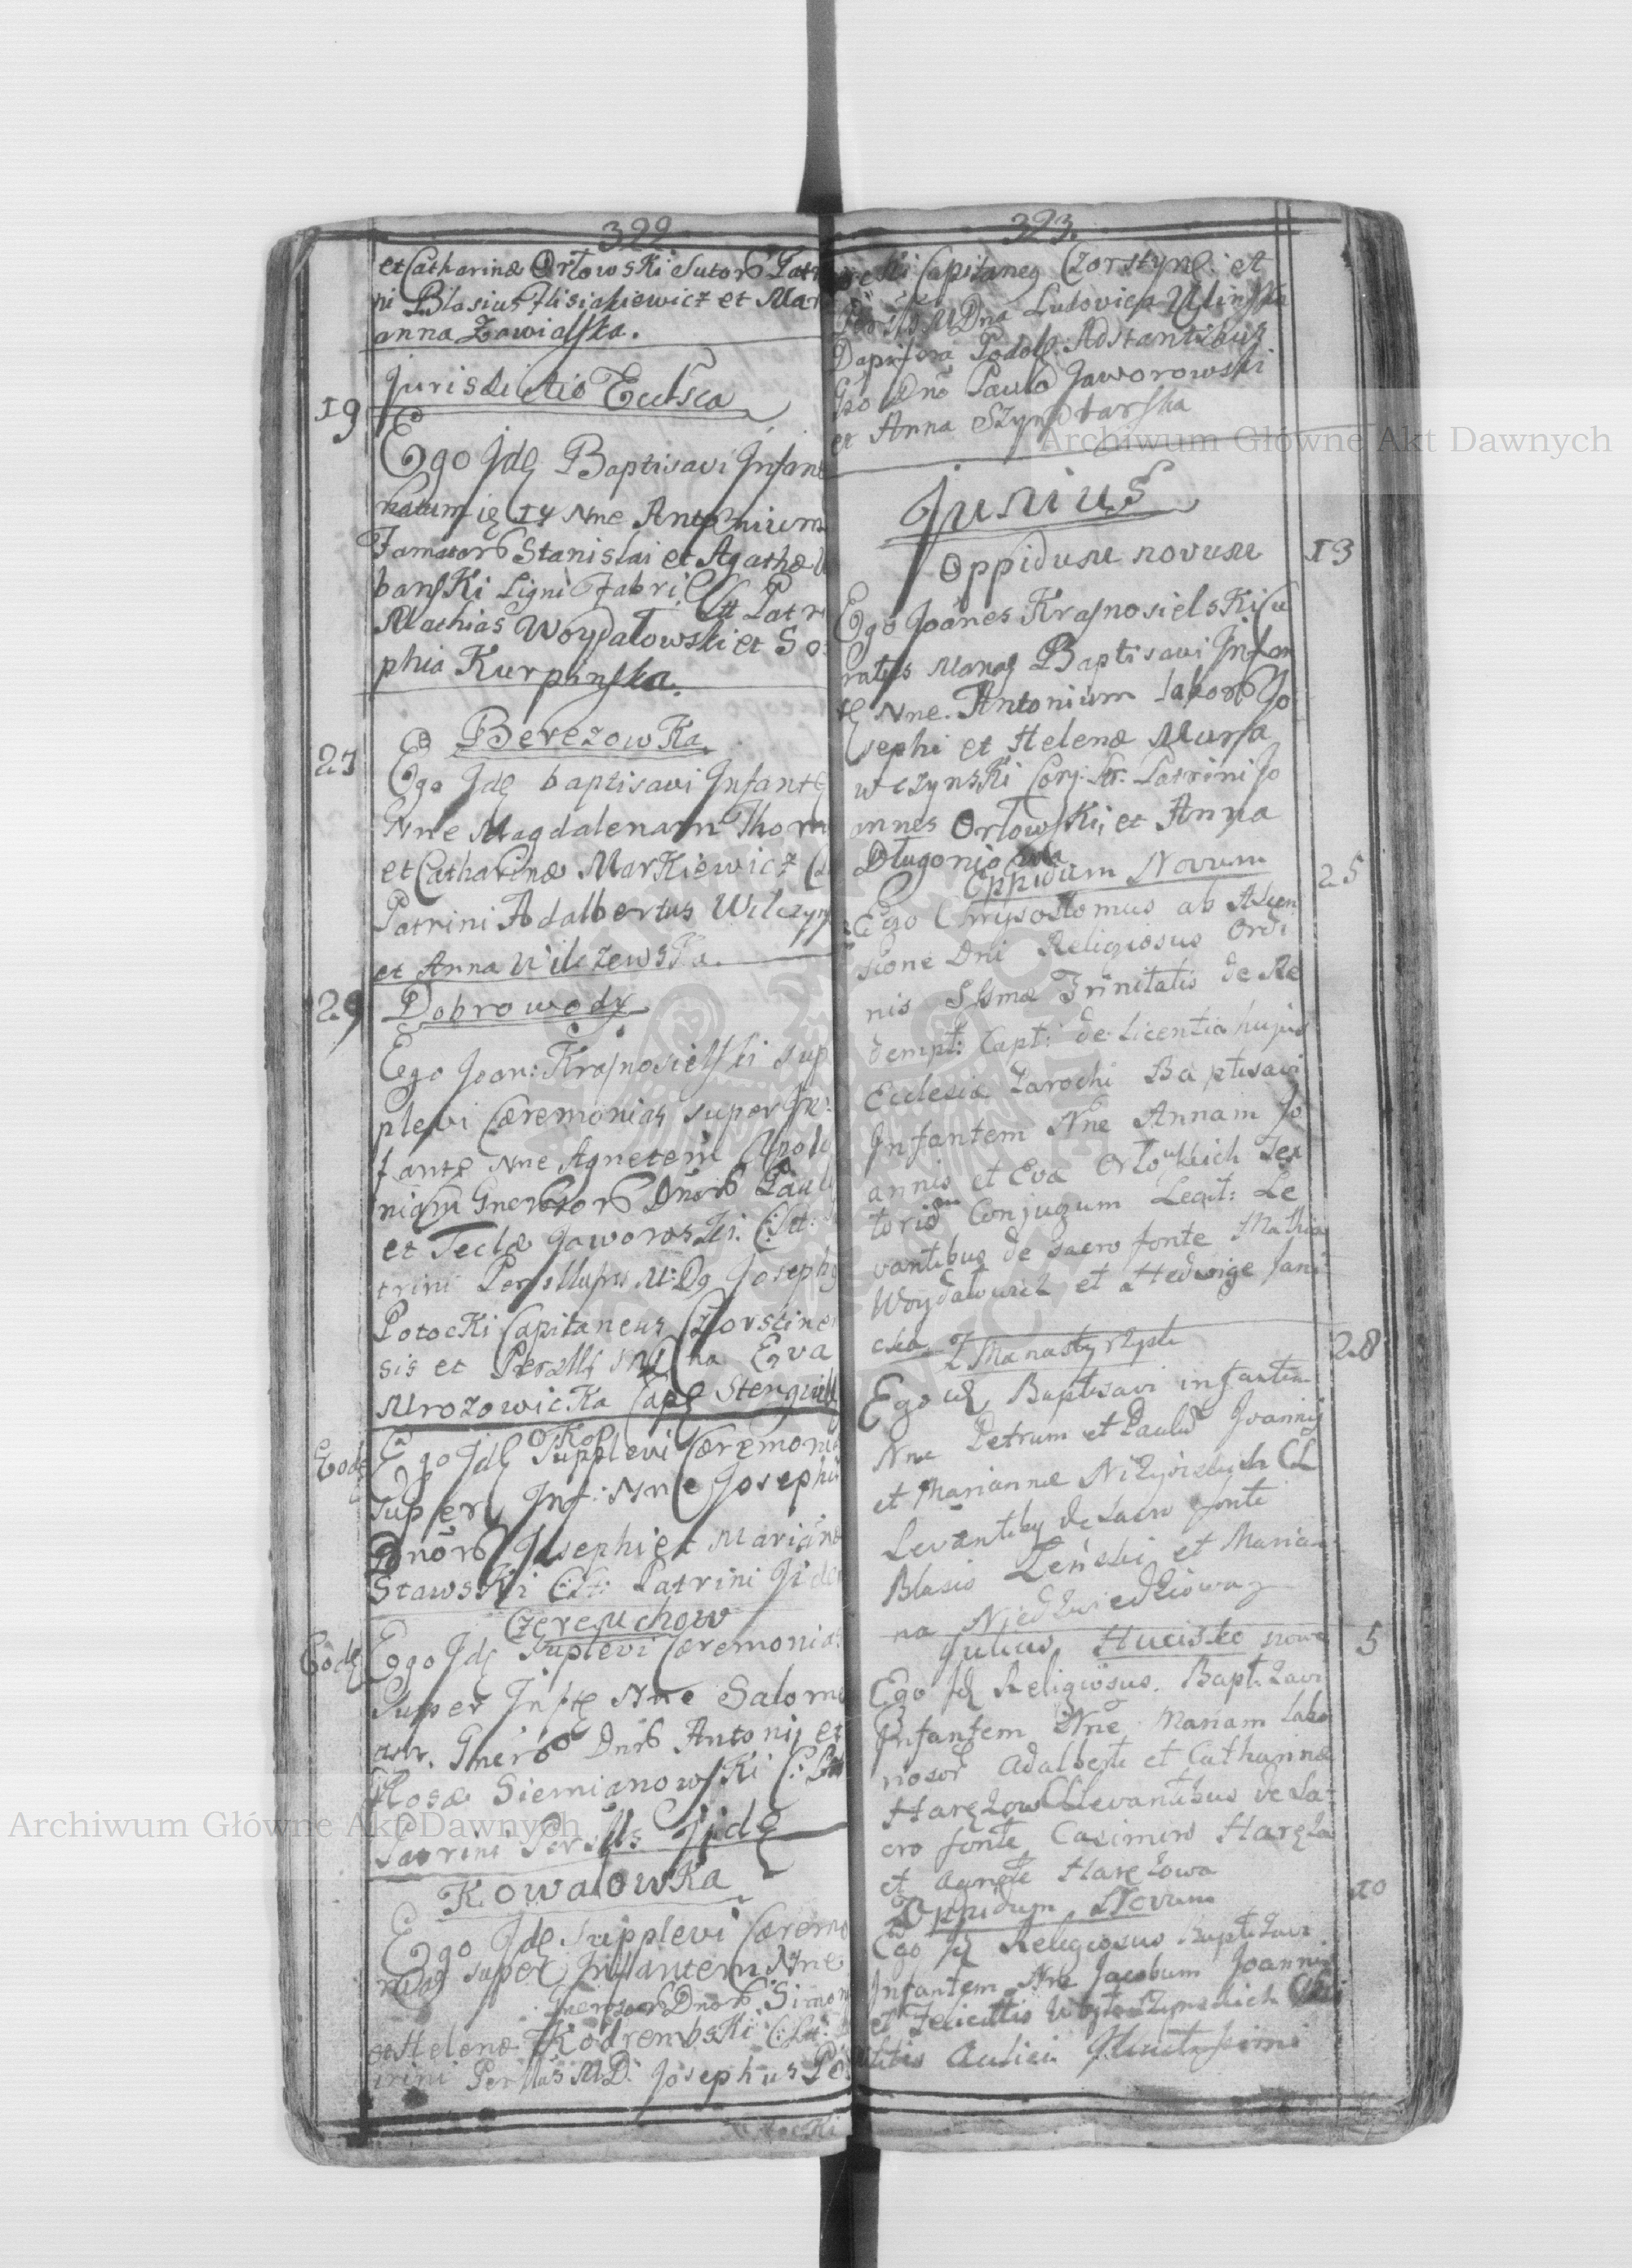 322
et Catharinæ Orłowski Sutorū Patri
ni Blasius Flisiakiewicz et Mari
anna Zawialska.
Jurisdictio Eccl:sca
19
Ego Idē Baptisavi Infan
natum 14 Nne Antonium
Famator Stanislai et Agathæ
banski Ligni Fabri LLtt Patri
Mathias Woydatowski et So
phia Kurpinska.
Berezowka
21
Ego Idē baptisavi Infantē
Nne Magdalenam Thom
et Catharinæ Markiewicz
Patrini Adalbertus Wilczyn
et Anna Wilczewska.
29
Dobrowody
Ego Joan: Krasnosielski sup
plevi Cæremonias super In:
fantē Nne Agnetem Apolo
niam Gnersor Dnorū Pauli
et Teclæ Jaworski. C: Ltt:
trini Perillustris M: Dg Josephg
Potocki Capitaneus Czorstinen
sis et Perills Mg Eva
Mrozowicka Cap Stengwil
Eodē
Ego Idē Supplevi Cæremonia
super Inf: Nne Josephū
Dnorū Josephi et Mariānæ
Stawski C: Lt: Patrini Iidem
Czeremchow
Eodē
Ego Idē Suplevi Cæremonias
super Inftē Nne Salome
am. Gnerō Dnrū Antonij et
Rosæ Siemianowski C: Ltt
Patrini Perills Iidē
Kowalowka
Ego Idē Supplevi Cæremo
nias super Infantem Nne
Gnersor Dnorū Simon
et Helenæ Kodrembski C: Ltt:
trini Perillus MD: Josephus Po
tocki
323
tocki Capitaneg Czorstyns: et
Perills MDna Ludovica Ulinska
Dapifera Podols: Adstantibus
Gso Dno Paulo Jaworowski
et Anna Szyndtarska
Junius
Oppidum novum
13
Ego Joānes Krasnosielski Cu
ratus Monas Baptisavi Infan
tē Nne. Antonium Labor Jo
sephi et Helenæ Mura
wczynski Conj: Lt. Patrini Jo
annes Orłowski, et Anna
Długoniowa
Oppidum Novum
25
Ego Chrysostomus ab Ascen
sione Dni Religiosus Ordi
nis SSsmæ Trinitatis de Re
dempt: Capt: de Licentia hujus
Ecclesiæ Parochi Baptisavi
Infantem Nne Annam Jo
annis et Eva Orłowskich Tex
torum Conjugum Legit: Le
vantibus de sacro fonte Mathia
Woydatowicz et Hedwige Jani
cka
Z Manasty rzysk
28
Ego idē Baptisavi infantem
Nne Petrum et Paulū Joannis
et Mariannæ Niżyńskich CL
Levantibg de Sacro fonte
Blasio Zenski et Marian
na Niedzwiedziowa
Julius Hucisko nowe
5
Ego Idē Religiosus. Baptizavi
Infantem Nne Mariam Labo
riosor Adalberti et Catharinæ
Haręzow CL Levantibus de Sa
cro fonte Casimiro Haręza
et Agnete Haręzowa
Oppidum Novum
10
Ego Idē Religiosus Baptizavi
Infantem Nne Jacobum Joannis
et Felicitatis
litis Aulici Illustrissimi
Archiwum Główne Akt Dawnych
Archiwum Główne Akt Dawnych